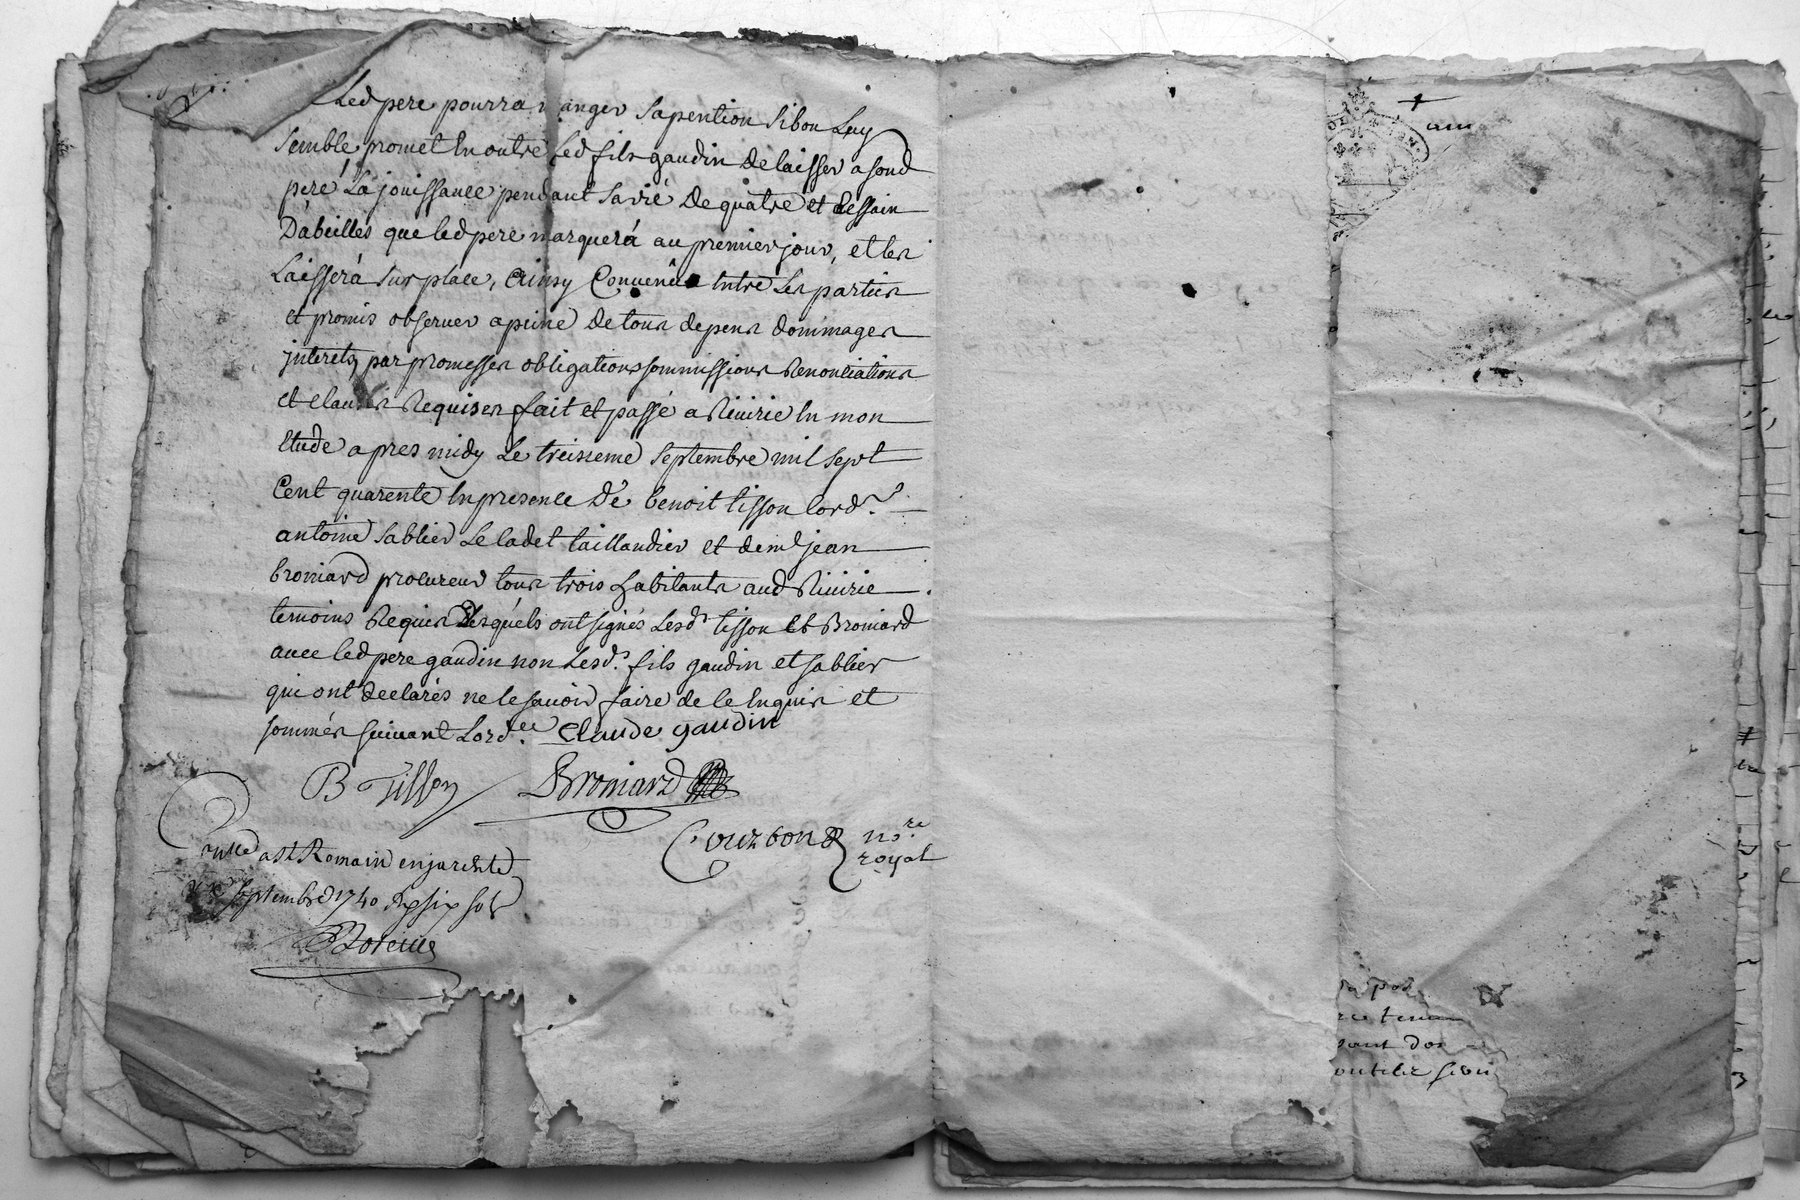 Led pere pourra manger sa pention si bon luy
semble, promet en outre led fils gaudin de laisser a sond
pere la jouissance pendant sa vie de quatre et dessain
D'abeilles que led pere marquerá au premier jour, et les
laisserá sur place, Ainsy Convenu entre les parties
et promis observer a peine de tous depens dommages
interets par promesses obligations sommissions renonciations
et clauses Requises fait et passé a Riuirie en mon
Etude apres midy le treisieme septembre mil sept
Cent quarente en presence de benoit tisson cord.r
antoine sablier le cadet taillandier et de m.e jean
broniard procureur tous trois habitants aud Riuirie
temoins Requis Lesquels ont signés lesd.s tisson et Broniard
avec led pere gaudin non lesd.s fils gaudin et sablier
qui ont declarés ne le sauoir faire de ce enquis et
sommés suiuant L'ord.ce Claude gaudin
B Tisson Broniard
Courbon no.re
royal
a St Romain en jarest le
septembre 1740 Rx six sols
am
pos
ce tenu
sant dos